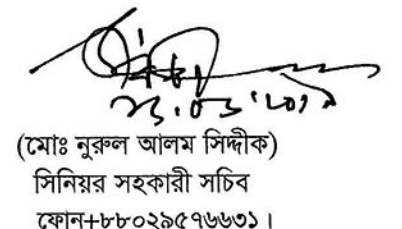 (মোঃ নুরুল আলম সিদ্দীক)
সিনিয়র সহকারী সচিব
ফোন+৮৮০২৯৫৭৬৬৩১।